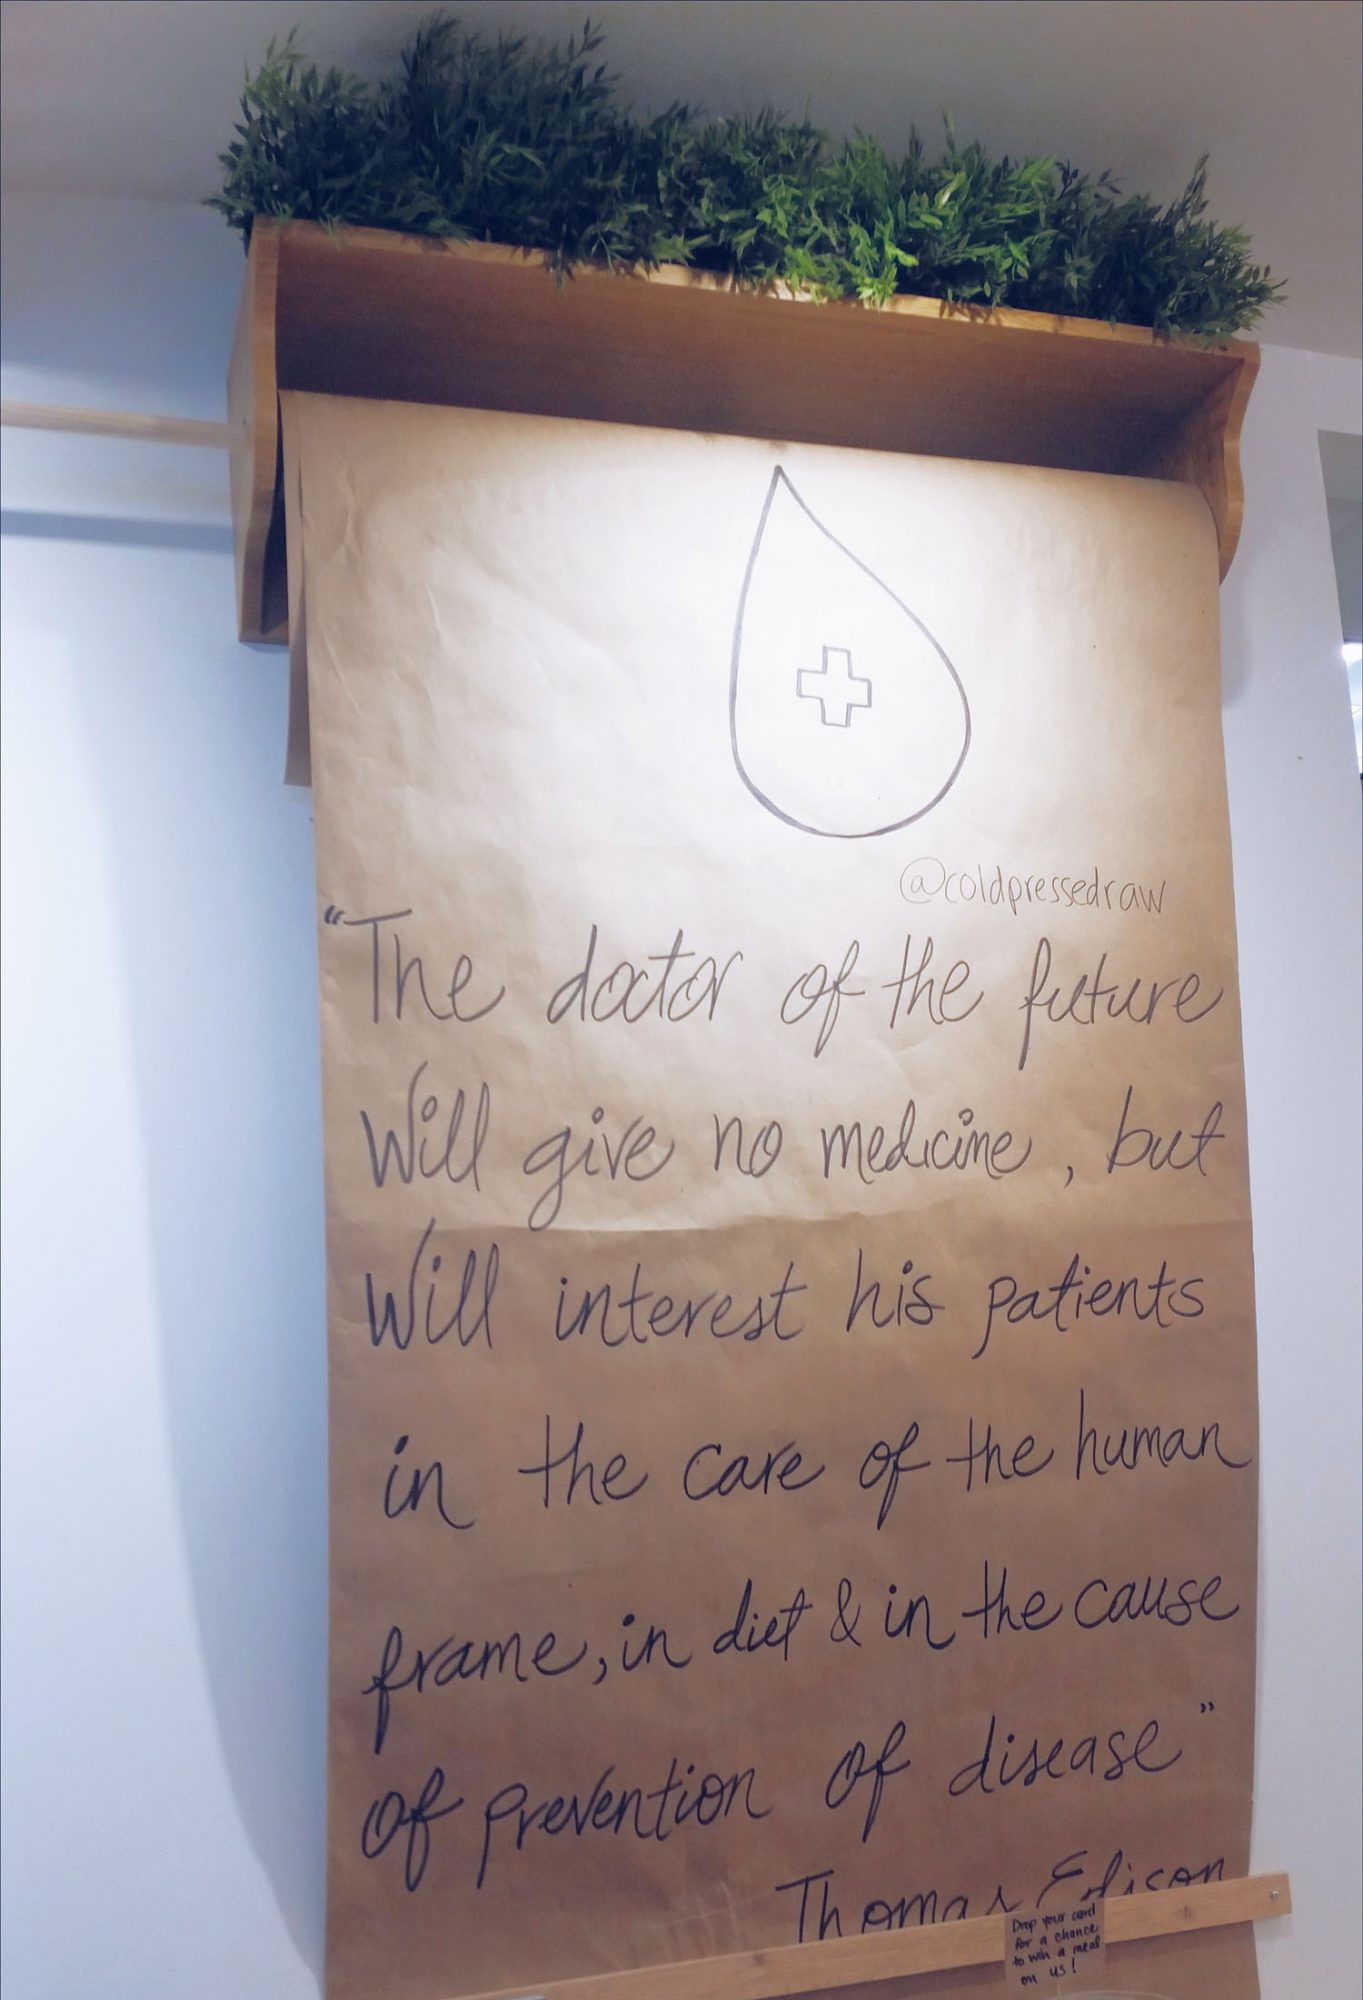 @coldpressedraw
"The doctor of the future
Will give no medicine, but
Will interest his patients
in the care of the human
frame, in diet & in the cause
of prevention of disease"
Thomas Edison
Drop your card
for a chance
to win a meal
on us!